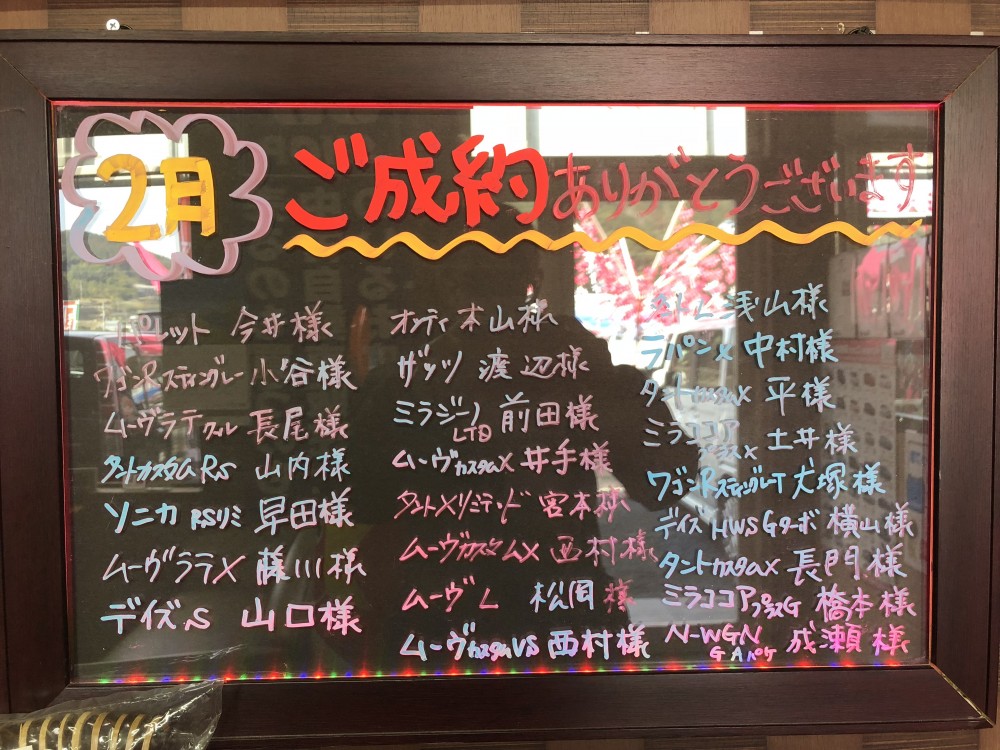 2月
ご成約ありがとうございます
パレット 今井様
ワゴンRスティングレー 小谷様
ムーヴラテクール 長尾様
タントカスタムRS 山内様
ソニカ RSリミ 早田様
ムーヴラテX 藤川様
デイズS 山口様
オッティ 本山様
ザッツ 渡辺様
ミラジーノ 前田様
LTD
ムーヴカスタムX 井手様
タントXリミテッド 宮本様
ムーヴカスタムX 西村様
ムーヴL 松岡様
ムーヴカスタムVS 西村様
L 浅山様
ラパンX 中村様
タントカスタムX 平様
ミラココア
プラスX 土井様
ワゴンRスティングレーT 犬塚様
デイズHWS Gターボ 横山様
タントカスタムX 長門様
ミラココアプラスG 橋本様
N-WGN 成瀬様
G Aパケ